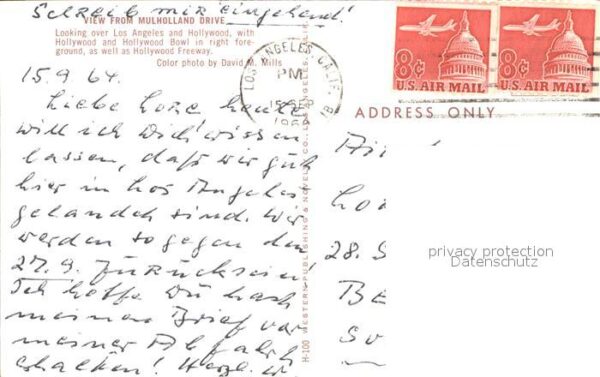 Schreib mir eingehend!
VIEW FROM MULHOLLAND DRIVE
Looking over Los Angeles and Hollywood, with
Hollywood and Hollywood Bowl in right fore-
ground, as well as Hollywood Freeway.
Color photo by David M. Mills
15.9.64.
Liebe Lore heute
will ich Dich wissen
lassen, daß wir gut
hier in Los Angeles
gelandet sind. Wir
werden so gegen den
27.9. zurück sein!
Ich hoffe Du hast
meinen Brief vor
meiner Abfahrt
erhalten! Herzl.
LOS ANGELES, CALIF.
PM
8¢ U.S. AIR MAIL
8¢ U.S. AIR MAIL
ADDRESS ONLY
28. S
BE
So
privacy protection
Datenschutz
H-100 WESTERN PUBLISHING & NOVELTY CO., LOS ANGELES, CALIF.